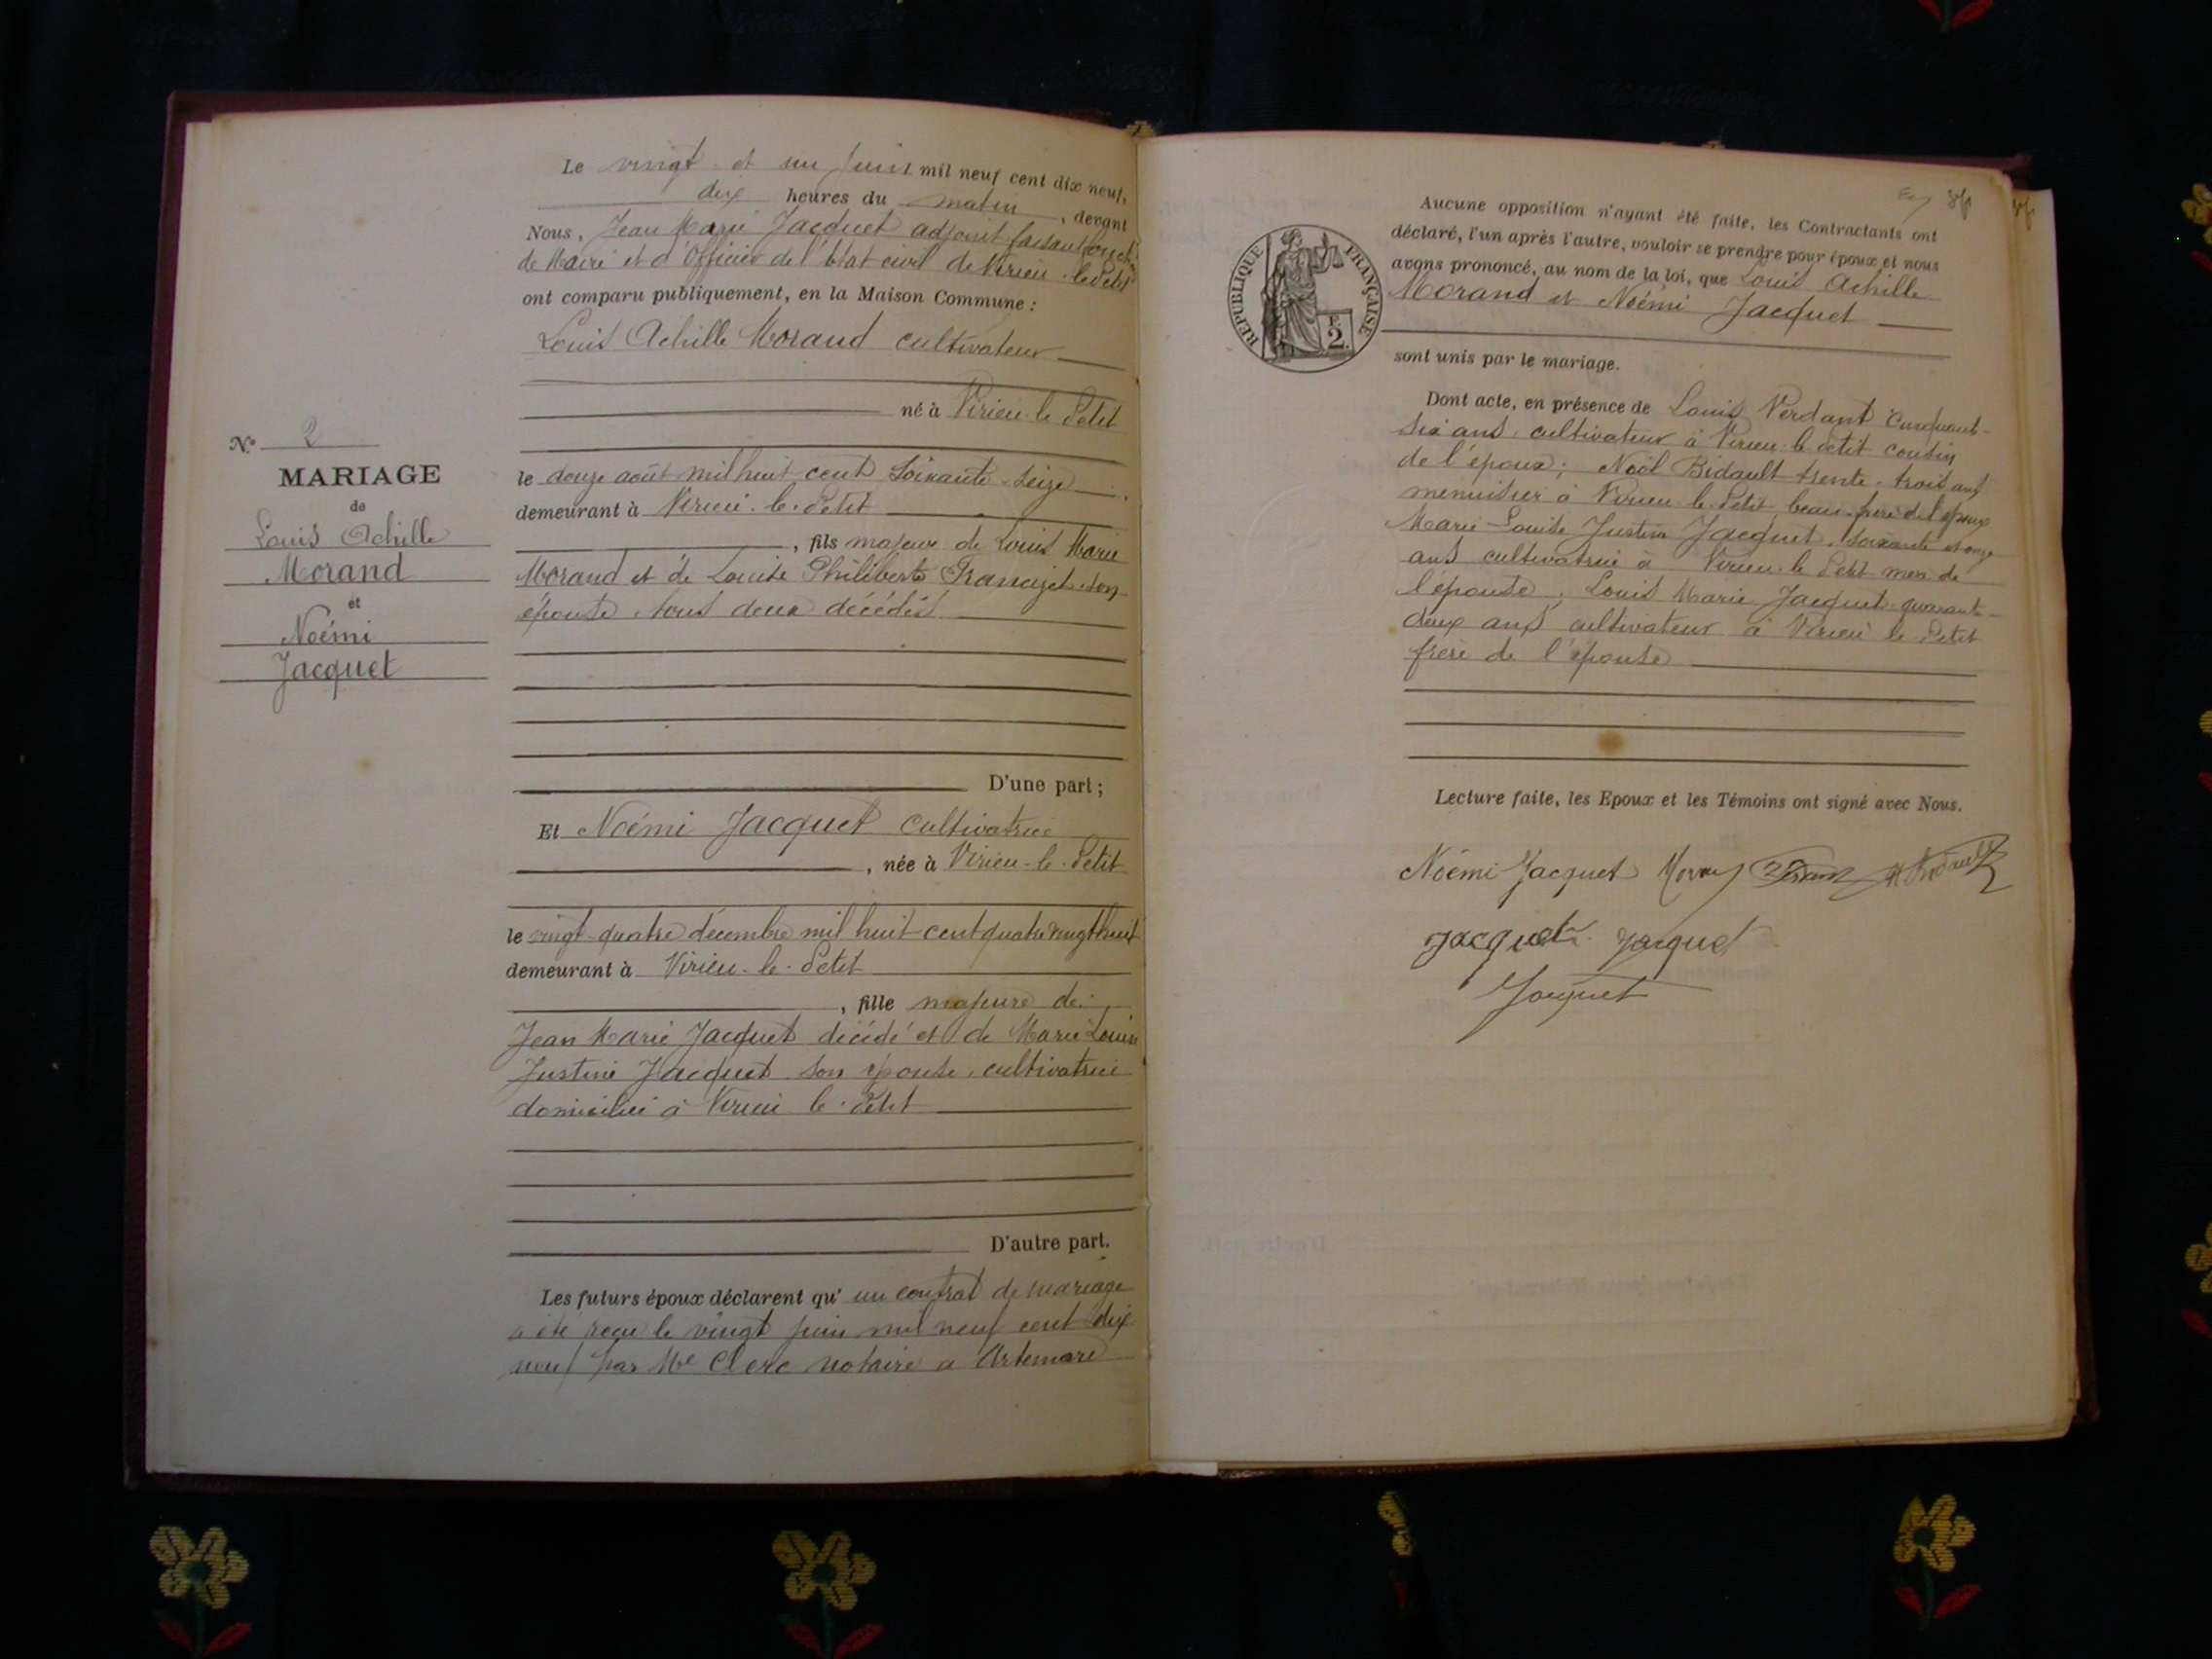 Le vingt et un juin mil neuf cent dix neuf,
dix heures du matin, devant
Nous, Jean Marie Jacquet adjoint faisant fonct
de Maire et d'Officier de l'Etat civil de Virieu-le-Petit
ont comparu publiquement, en la Maison Commune :
Louis Achille Morand cultivateur
né à Virieu-le-Petit
le douze août mil huit cent soixante-seize
demeurant à Virieu-le-Petit
, fils majeur de Louis Marie
Morand et de Louise Philiberte son
épouse, tous deux décédés
D'une part ;
Nº 2
MARIAGE
de
Louis Achille
Morand
et
Noémi
Jacquet
Et Noémi Jacquet cultivatrice
, née à Virieu-le-Petit
le vingt-quatre décembre mil huit cent quatre vingt huit
demeurant à Virieu-le-Petit
, fille majeure de
Jean Marie Jacquet décédé et de Marie Louise
Justine Jacquet son épouse, cultivatrice
domiciliée à Virieu-le-Petit
D'autre part.
Les futurs époux déclarent qu'un contrat de mariage
a été reçu le vingt juin mil neuf cent dix
neuf par Me Clerc notaire a Artemare
RÉPUBLIQUE FRANÇAISE
F. 2
Aucune opposition n'ayant été faite, les Contractants ont
déclaré, l'un après l'autre, vouloir se prendre pour époux et nous
avons prononcé, au nom de la loi, que Louis Achille
Morand et Noémi Jacquet
sont unis par le mariage.
Dont acte, en présence de Louis Verdant cinquante-
six ans, cultivateur à Virieu-le-Petit cousin
de l'époux ; Noël Bidault trente-trois ans
menuisier à Virieu-le-Petit beau-frère de l'époux
Marie-Louise Justine Jacquet, soixante et onze
ans cultivatrice à Virieu-le-Petit mère de
l'épouse ; Louis Marie Jacquet quarante-
deux ans cultivateur à Virieu-le-Petit
frère de l'épouse
Lecture faite, les Epoux et les Témoins ont signé avec Nous.
Noémi Jacquet
Jacquet Jacquet
Jacquet